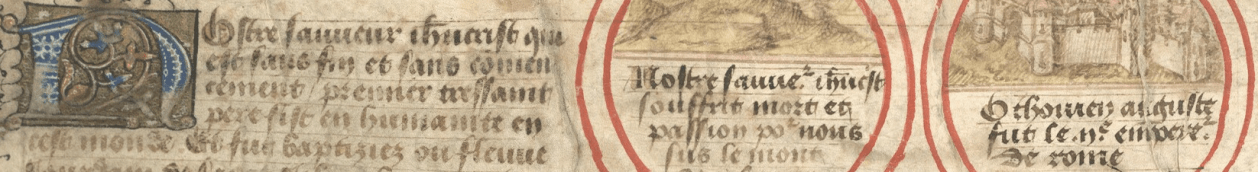 Nostre sauveur ihucrist qui
est sans fin et sans comen
cement / premier tressaint
pere fist en humanite en
cest monde Et fut baptiziez ou fleuve
Nostre sauue.ͬ ihucst
souffrit mort et
passion po.ͬ nous
sus le mont
Othovien auguste
fut le .ii.ͤ empere.ͬ
de rome